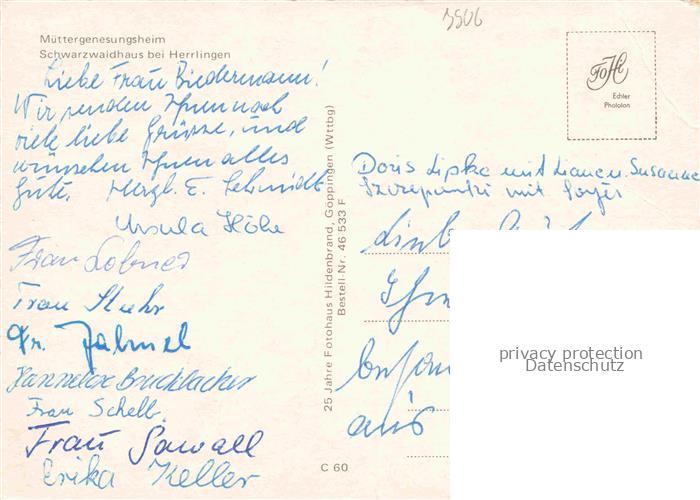 3506
Müttergenesungsheim
Schwarzwaidhaus bei Herrlingen
Liebe Frau Biedermann!
Wir senden Ihnen
viele liebe Grüsse, und
wünschen Ihnen alles
Gute. Herzl. E. Schmidt
Ursula Höhe
Frau Lobner
Frau Stuhr
Fr. Jahnel
Hannelore Bruckbacher
Frau Schell
Frau Sawall
Erika Keller
25 Jahre Fotohaus Hildenbrand, Göppingen (Wttbg)
Bestell-Nr. 46 533 F
C 60
FoHi
Echter
Phototon
Doris Lipka mit Susanne
mit
aus
privacy protection
Datenschutz